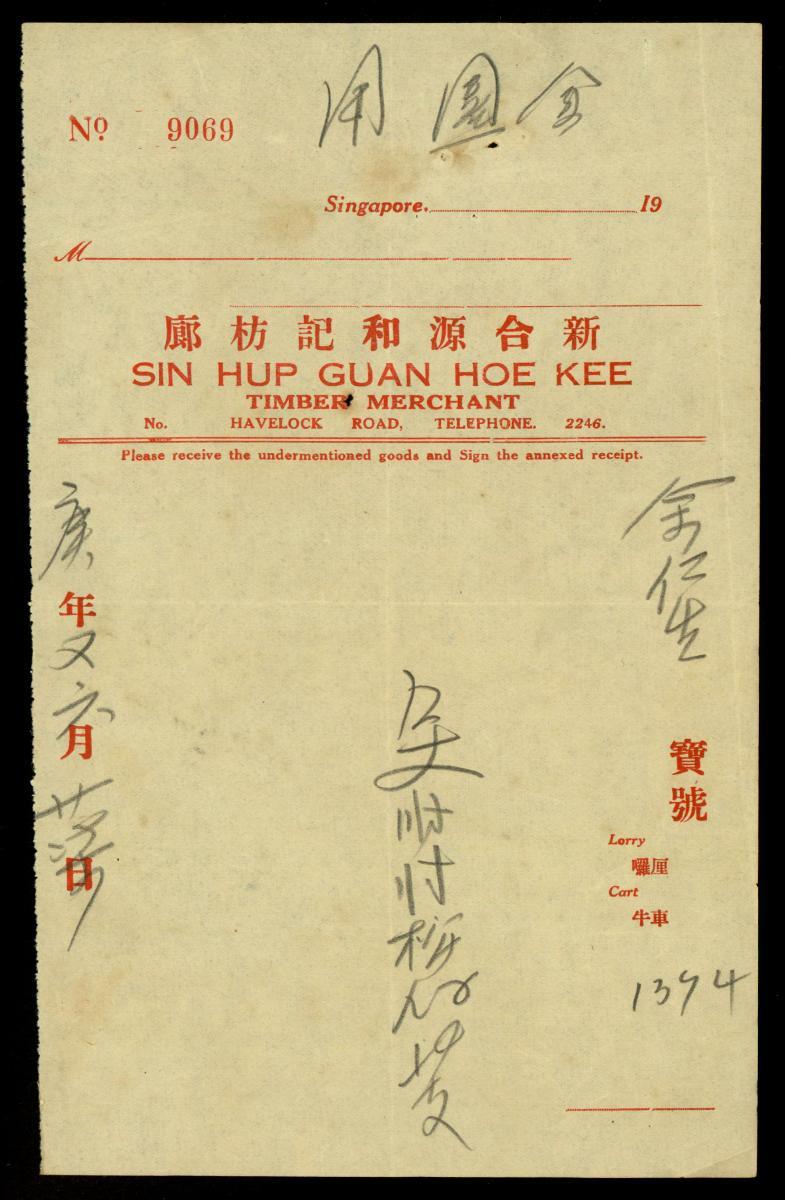 No 9069
Singapore. 19
M
廊枋記和源合新
SIN HUP GUAN HOE KEE
TIMBER MERCHANT
No. HAVELOCK ROAD, TELEPHONE. 2246.
Please receive the undermentioned goods and Sign the annexed receipt.
余仁生
寶號
Lorry
囉厘
Cart
牛車
1394
庚年又六月
日